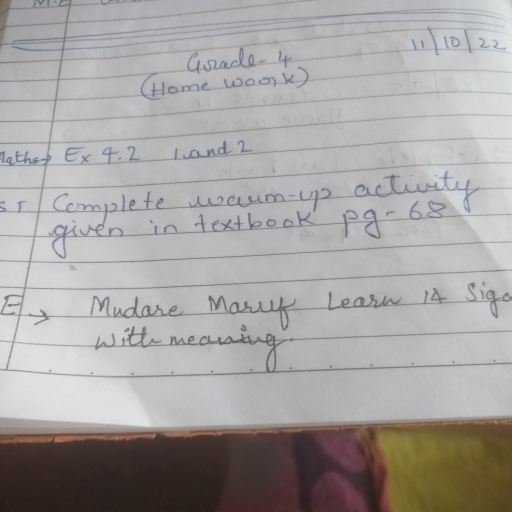 11/10/22
Grade-4
(Home Work)
Maths→ Ex 4.2 1. and 2
ST Complete warm-up activity
given in textbook pg-68
E → Mudare Maruf Learn 14 Siga
with meaning.